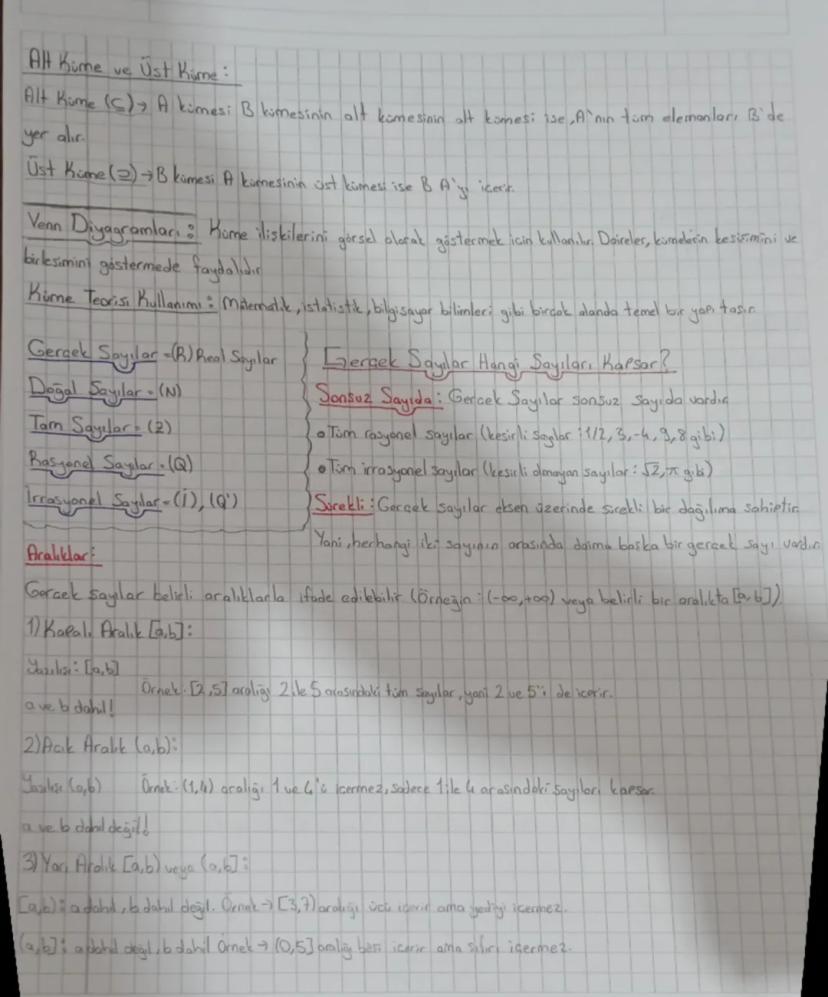 Alt Küme ve Üst Küme:
Alt Küme (⊆) → A kümesi B kümesinin alt kümesinin alt kümesi ise, A'nın tüm elemanları B'de
yer alır.
Üst Küme (⊇) → B kümesi A kümesinin üst kümesi ise B A'yı içerir.
Venn Diyagramları: Küme ilişkilerini görsel olarak göstermek için kullanılır. Daireler, kümelerin kesişimini ve
birleşimini göstermede faydalıdır
Küme Teorisi Kullanımı: Matematik, istatistik, bilgisayar bilimleri gibi birçok alanda temel bir yapı taşıdır
Gerçek Sayılar = (R) Real Sayılar
Doğal Sayılar = (N)
Tam Sayılar = (Z)
Rasyonel Sayılar = (Q)
İrrasyonel Sayılar = (İ), (Q')
Gerçek Sayılar Hangi Sayıları Kapsar?
Sonsuz Sayıda: Gerçek Sayılar sonsuz sayıda vardır
• Tüm rasyonel sayılar (kesirli sayılar: 1/2, 3, -4, 9, 8 gibi)
• Tüm irrasyonel sayılar (kesirli olmayan sayılar: √2, π gibi)
Sürekli: Gerçek sayılar eksen üzerinde sürekli bir dağılıma sahiptir
Yani, herhangi iki sayının arasında daima başka bir gerçek sayı vardır
Aralıklar:
Gerçek sayılar belirli aralıklarla ifade edilebilir (Örneğin: (-∞, +∞) veya belirli bir aralıkta [a, b])
1) Kapalı Aralık [a,b]:
Yazılışı: [a,b]
Örnek: [2,5] aralığı 2 ile 5 arasındaki tüm sayılar, yani 2 ve 5'i de içerir.
a ve b dahil!
2) Açık Aralık (a,b):
Yazılışı (a,b) Örnek: (1,4) aralığı 1 ve 4'ü içermez, sadece 1 ile 4 arasındaki sayıları kapsar
a ve b dahil değil!
3) Yarı Aralık [a,b) veya (a,b]:
[a,b): a dahil, b dahil değil. Örnek → [3,7) aralığı üçü içerir ama yediyi içermez.
(a,b]: a dahil değil, b dahil Örnek → (0,5] aralığı beşi içerir ama sıfırı içermez.